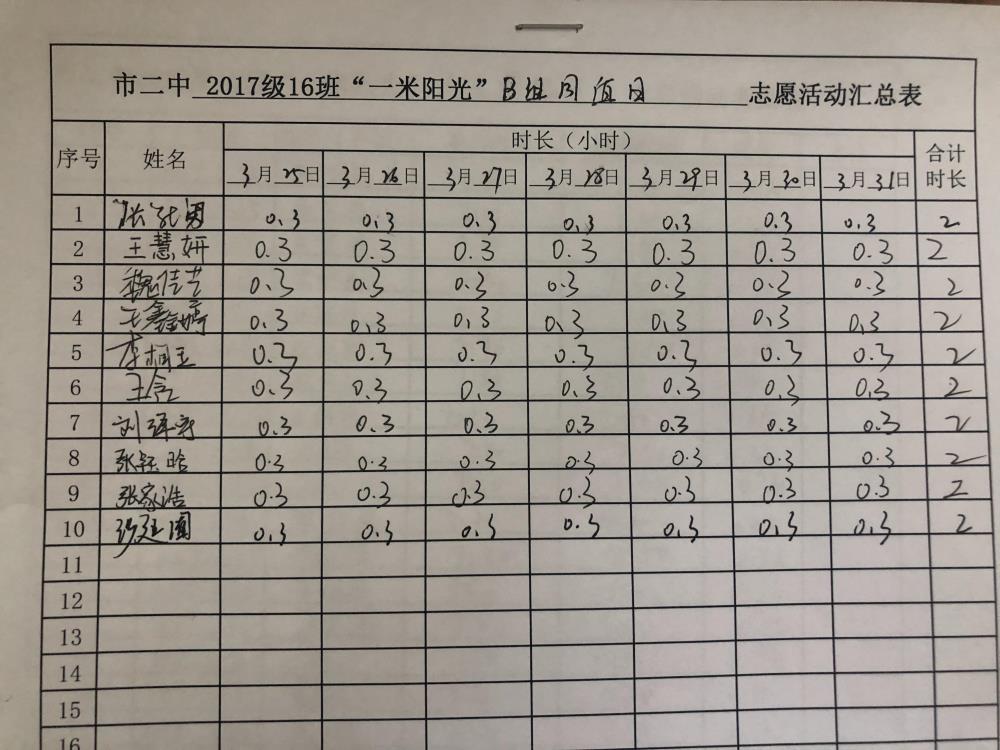 市二中 2017级16班“一米阳光”B组周值日 志愿活动汇总表
序号 姓名 时长（小时） 合计时长
3月25日 3月26日 3月27日 3月28日 3月29日 3月30日 3月31日
1 张 男 0.3 0.3 0.3 0.3 0.3 0.3 0.3 2
2 王慧妍 0.3 0.3 0.3 0.3 0.3 0.3 0.3 2
3 魏佳艺 0.3 0.3 0.3 0.3 0.3 0.3 0.3 2
4 王鑫婷 0.3 0.3 0.3 0.3 0.3 0.3 0.3 2
5 李桐玉 0.3 0.3 0.3 0.3 0.3 0.3 0.3 2
6 王 0.3 0.3 0.3 0.3 0.3 0.3 0.3 2
7 刘 0.3 0.3 0.3 0.3 0.3 0.3 0.3 2
8 张钰晗 0.3 0.3 0.3 0.3 0.3 0.3 0.3 2
9 张家浩 0.3 0.3 0.3 0.3 0.3 0.3 0.3 2
10 0.3 0.3 0.3 0.3 0.3 0.3 0.3 2
11
12
13
14
15
16